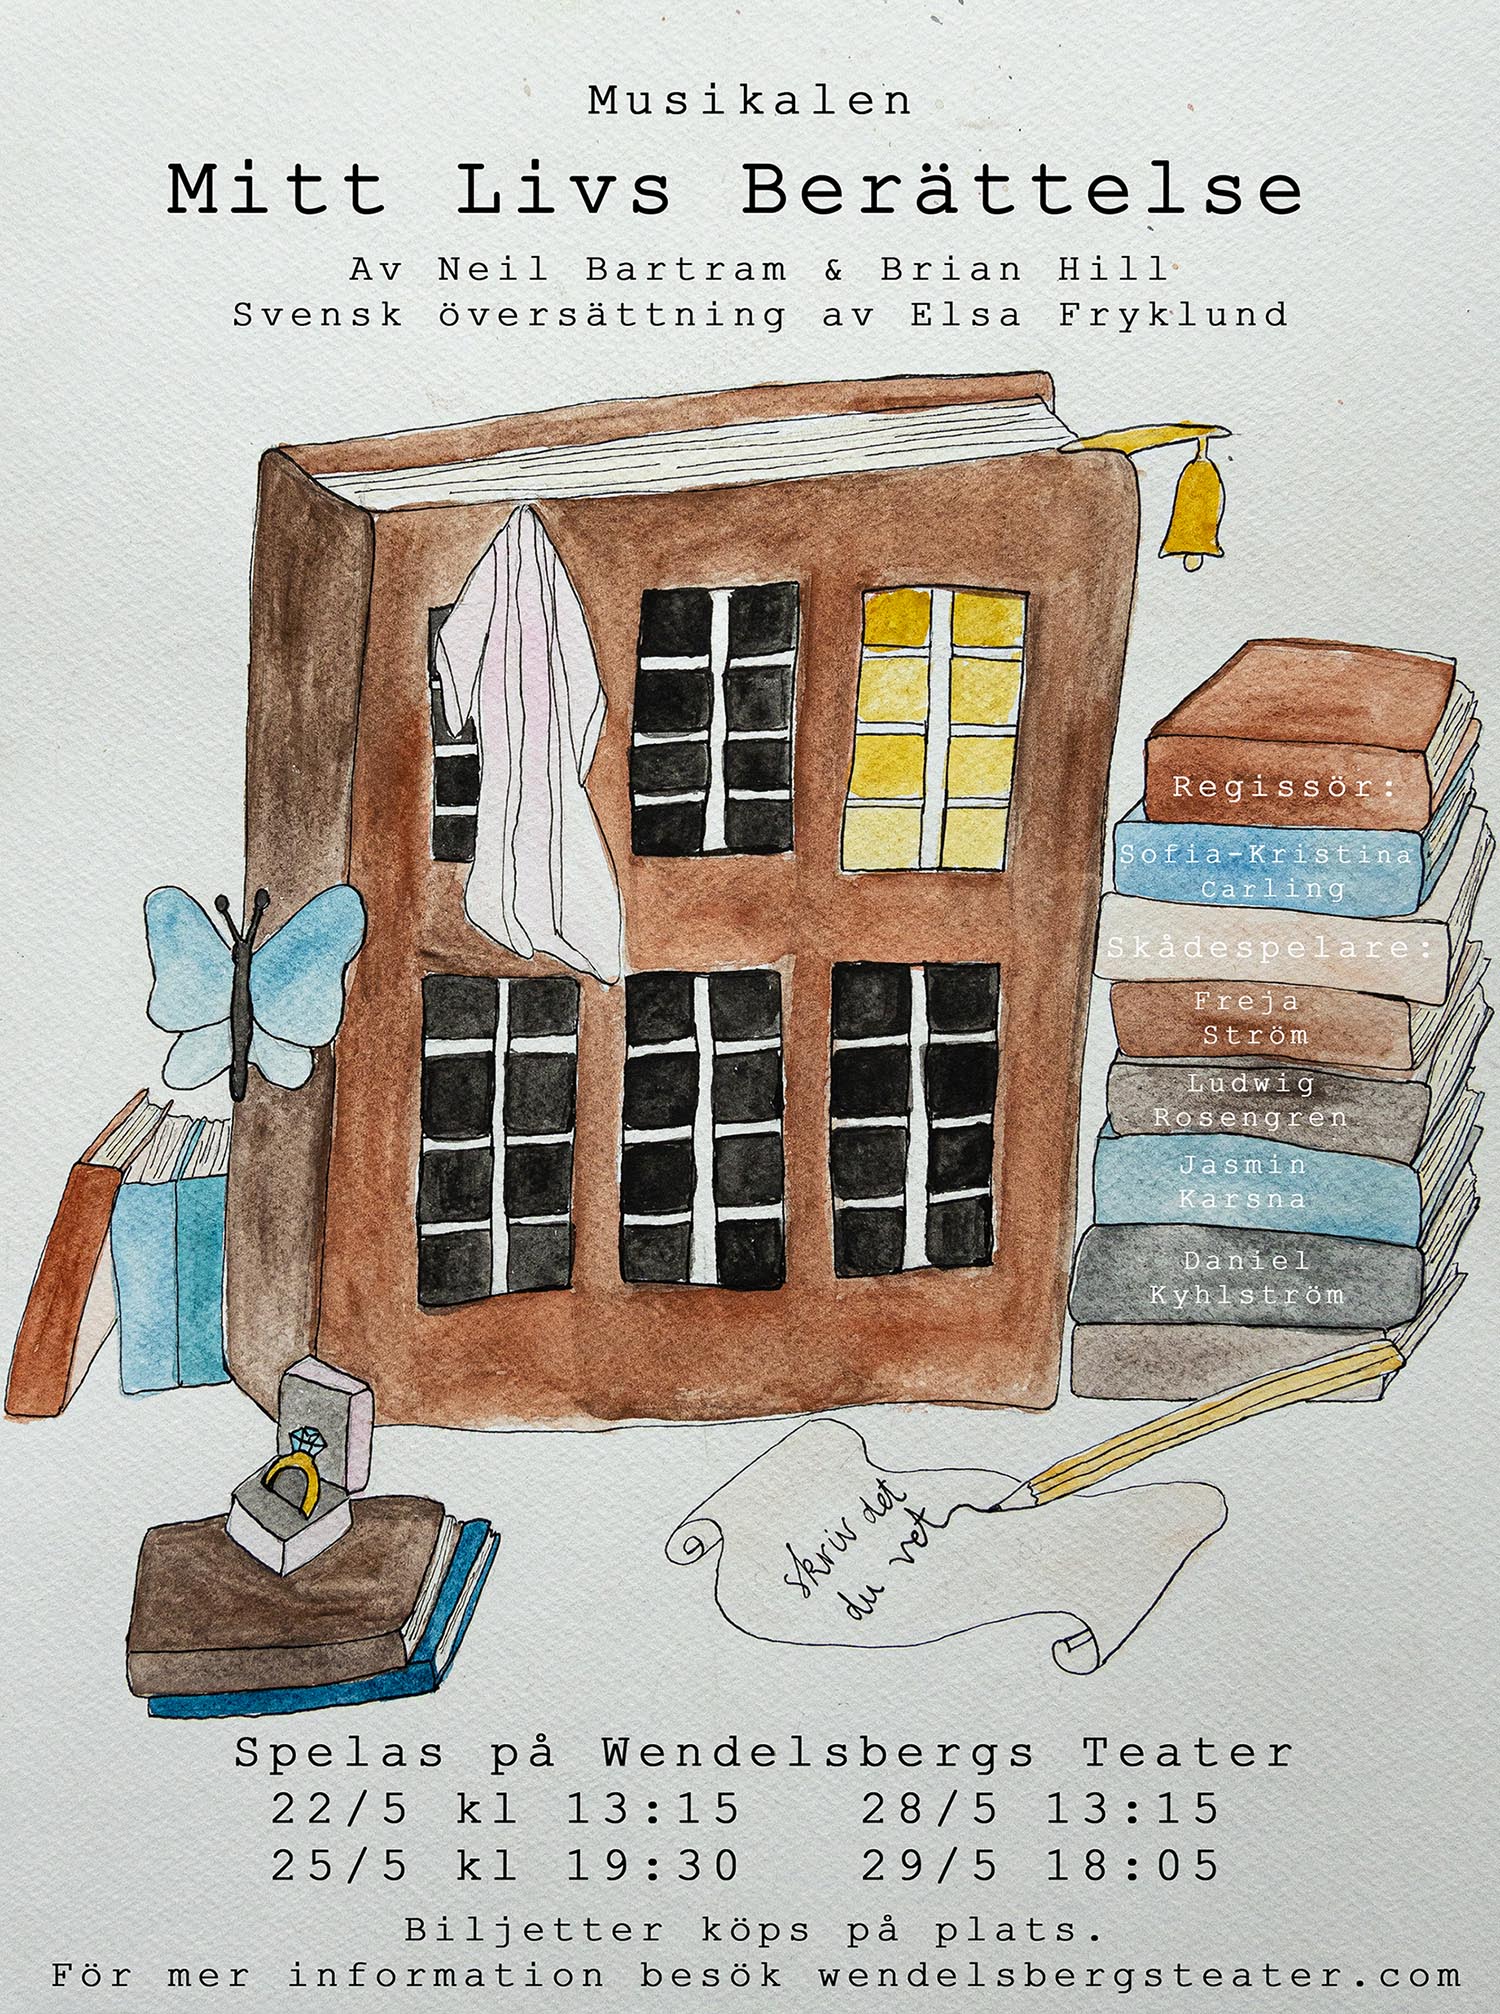 Musikalen
Mitt Livs Berättelse
Av Neil Bartram & Brian Hill
Svensk översättning av Elsa Fryklund
Regissör:
Sofia-Kristina
Carling
Skådespelare:
Freja
Ström
Ludwig
Rosengren
Jasmin
Karsna
Daniel
Kyhlström
skriv det
du vet
Spelas på Wendelsbergs Teater
22/5 kl 13:15 28/5 13:15
25/5 kl 19:30 29/5 18:05
Biljetter köps på plats.
För mer information besök wendelsbergsteater.com